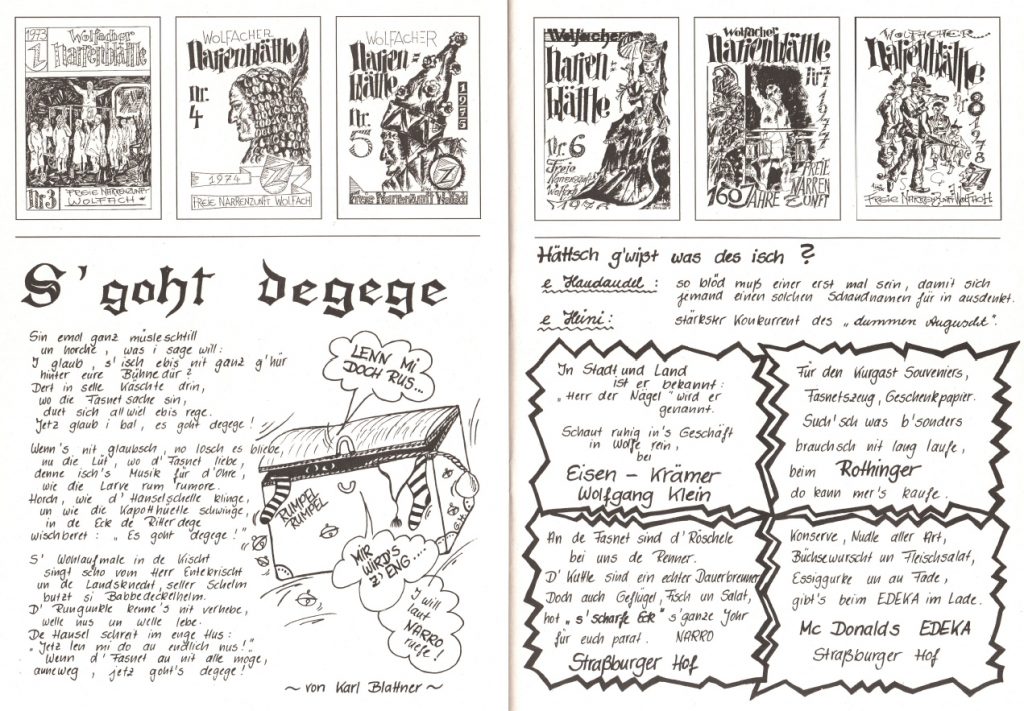 1973
Wolfacher
Narrenblättle
Nr 3
FREIE NARRENZUNFT
WOLFACH
WOLFACHER
Narrenblättle
Nr.
4
1974
FREIE NARRENZUNFT WOLFACH
WOLFACHER
Narren=
blättle
Nr.
5
1975
Freie Narrenzunft Wolfach
Wolfacher
Narren=
blättle
Nr. 6
Freie
Narrenzunft
Wolfach
1976
Wolfacher
Narrenblättle
Nr 7
1977
160 JAHRE
FREIE
NARREN
ZUNFT
WOLFACHER
Narrenblättle
Nr 8
1978
FREIE NARRENZUNFT WOLFACH
S' goht degege
Sin emol ganz müsleschtill
un horche, was i sage will:
I glaub, s'isch ebis nit ganz g'hür
hinter eure Bühnedür?
Dert in selle Kaschte drin,
wo die Fasnetsache sin,
duet sich all wiel ebis rege.
Jetz glaub i bal, es goht degege!
Wenn's nit glaubsch, no losch es bliebe,
nu die Lüt, wo d' Fasnet liebe,
denne isch's Musik für d'Ohre,
wie die Larve rum rumore.
Horch, wie d' Hanselschelle klinge,
un wie die Kapotthüetle schwinge,
in de Eck de Ritterdege
wischberet: „Es goht degege!"
S' Wohlaufmale in de Kischt
singt scho vom Herr Entekrischt
un de Landsknecht, seller Schelm
butzt si Babbedeckelhelm.
D' Rungunkle kenne's nit verhebe,
welle nus un welle lebe.
De Hansel schreit im enge Hus:
„Jetz len mi do au endlich nus!"
Wenn d' Fasnet au nit alle möge,
anneweg, jetz goht's degege!
~ von Karl Blattner ~
LENN MI
DOCH RUS...
RUMPEL
RUMPEL
MIR
WIRD'S
Z' ENG.....
I will
laut
NARRO
ruefe!
Hättsch g'wißt was des isch ?
e Haudaudel: so blöd muß einer erst mal sein, damit sich
jemand einen solchen Schandnamen für in ausdenkt.
e Heini: stärkster Konkurrent des „dummen Auguscht".
In Stadt und Land
ist er bekannt:
„Herr der Nägel" wird er
genannt.
Schaut ruhig in's Geschäft
in Wolfe rein,
bei
Eisen – Krämer
Wolfgang Klein
Für den Kurgast Souveniers,
Fasnetszeug, Geschenkpapier.
Such'sch was b'sonders
brauchsch nit lang laufe,
beim Rothinger
do kann mer's kaufe.
An de Fasnet sind d' Röschele
bei uns de Renner.
D' Kuttle sind ein echter Dauerbrenner
Doch auch Geflügel, Fisch un Salat,
hot „s'scharfe Eck" s'ganze Johr
für euch parat. NARRO
Straßburger Hof
Konserve, Nudle aller Art,
Büchsewurscht un Fleischsalat,
Essiggurke un au Fade,
gibt's beim EDEKA im Lade.
Mc Donalds EDEKA
Straßburger Hof